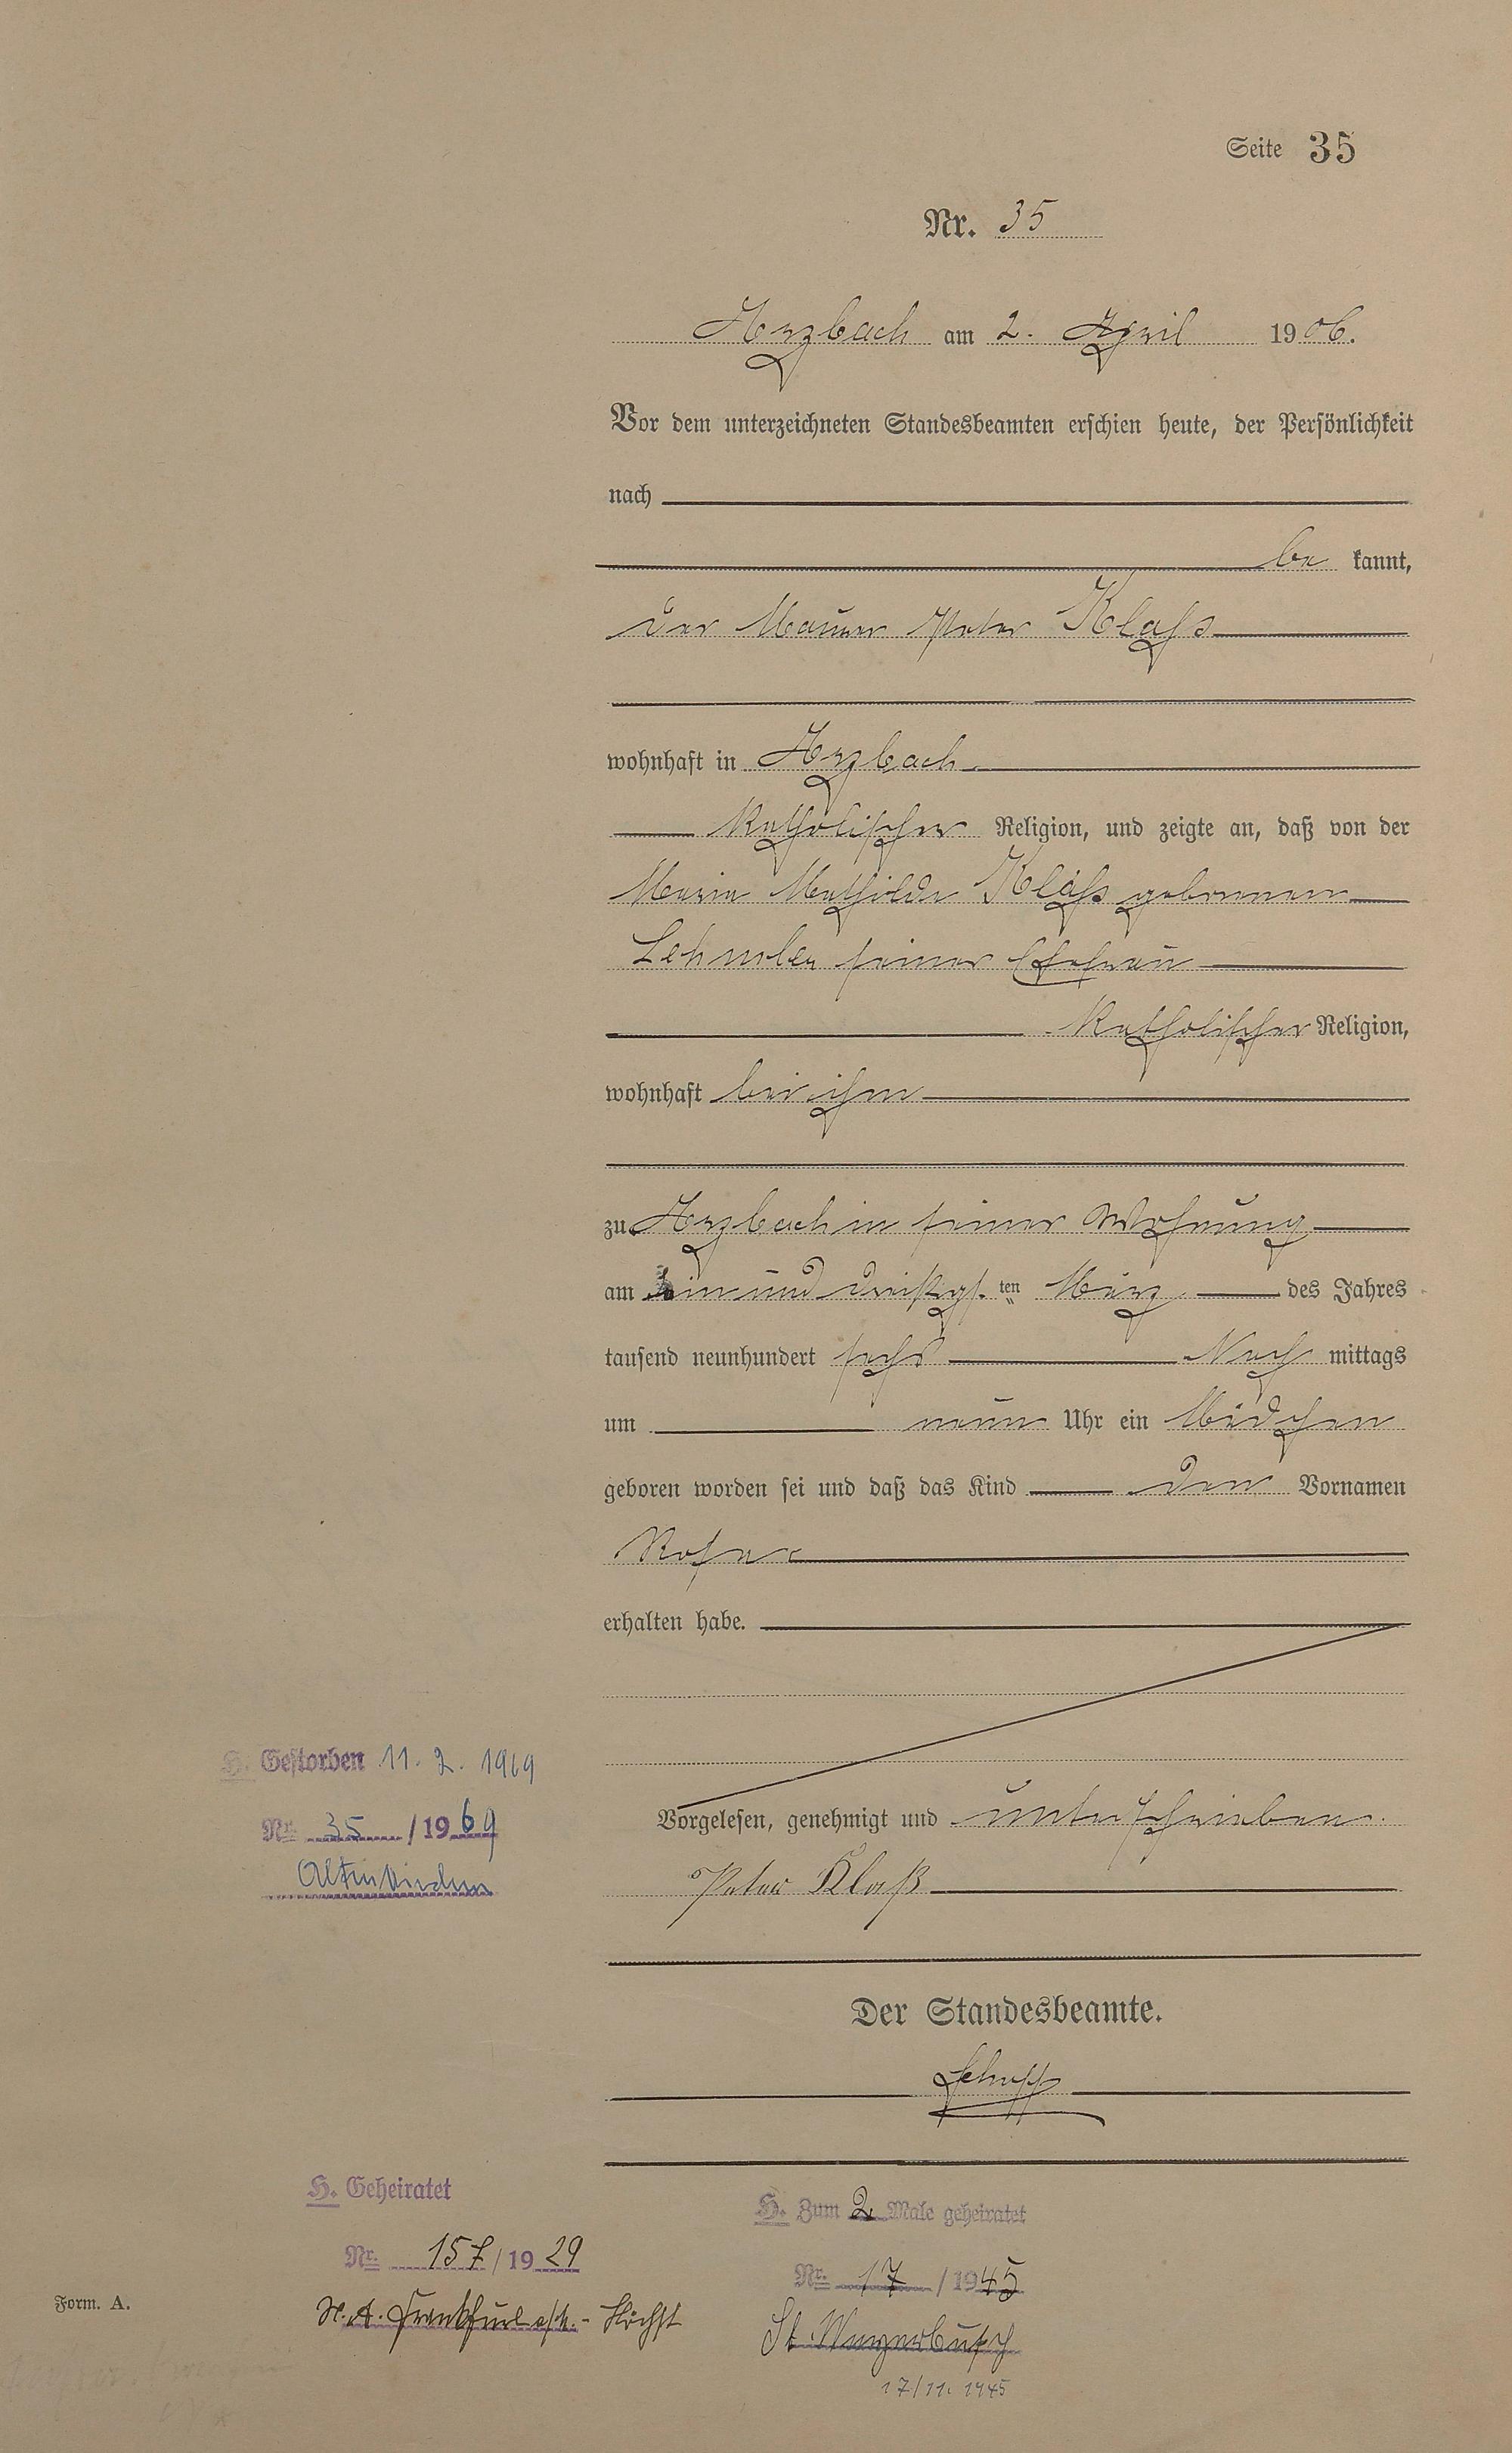 Seite 35
Nr. 35
Arzbach am 2. April 1906.
Vor dem unterzeichneten Standesbeamten erschien heute, der Persönlichkeit
nach
be kannt,
der Maurer Peter Klaß
wohnhaft in Arzbach
katholischer Religion, und zeigte an, daß von der
Maria Mathilde Klaß geborenen
seiner Ehefrau
katholischer Religion,
wohnhaft bei ihm
zu Arzbach in seiner Wohnung
am ein und dreißigsten März des Jahres
tausend neunhundert sechs Nach mittags
um neun Uhr ein Mädchen
geboren worden sei und daß das Kind den Vornamen
Rosa
erhalten habe.
H. Gestorben 11. 2. 1969
Nr. 35 / 1969
Altenkirchen
Vorgelesen, genehmigt und unterschrieben
Peter Klaß
Der Standesbeamte.
Schupp
H. Geheiratet
Nr. 157 / 1929
St. A. Frankfurt a/M. - Höchst
H. Zum 2. Male geheiratet
Nr. 17 / 1945
St. Weyerbusch
17/11. 1945
Form. A.